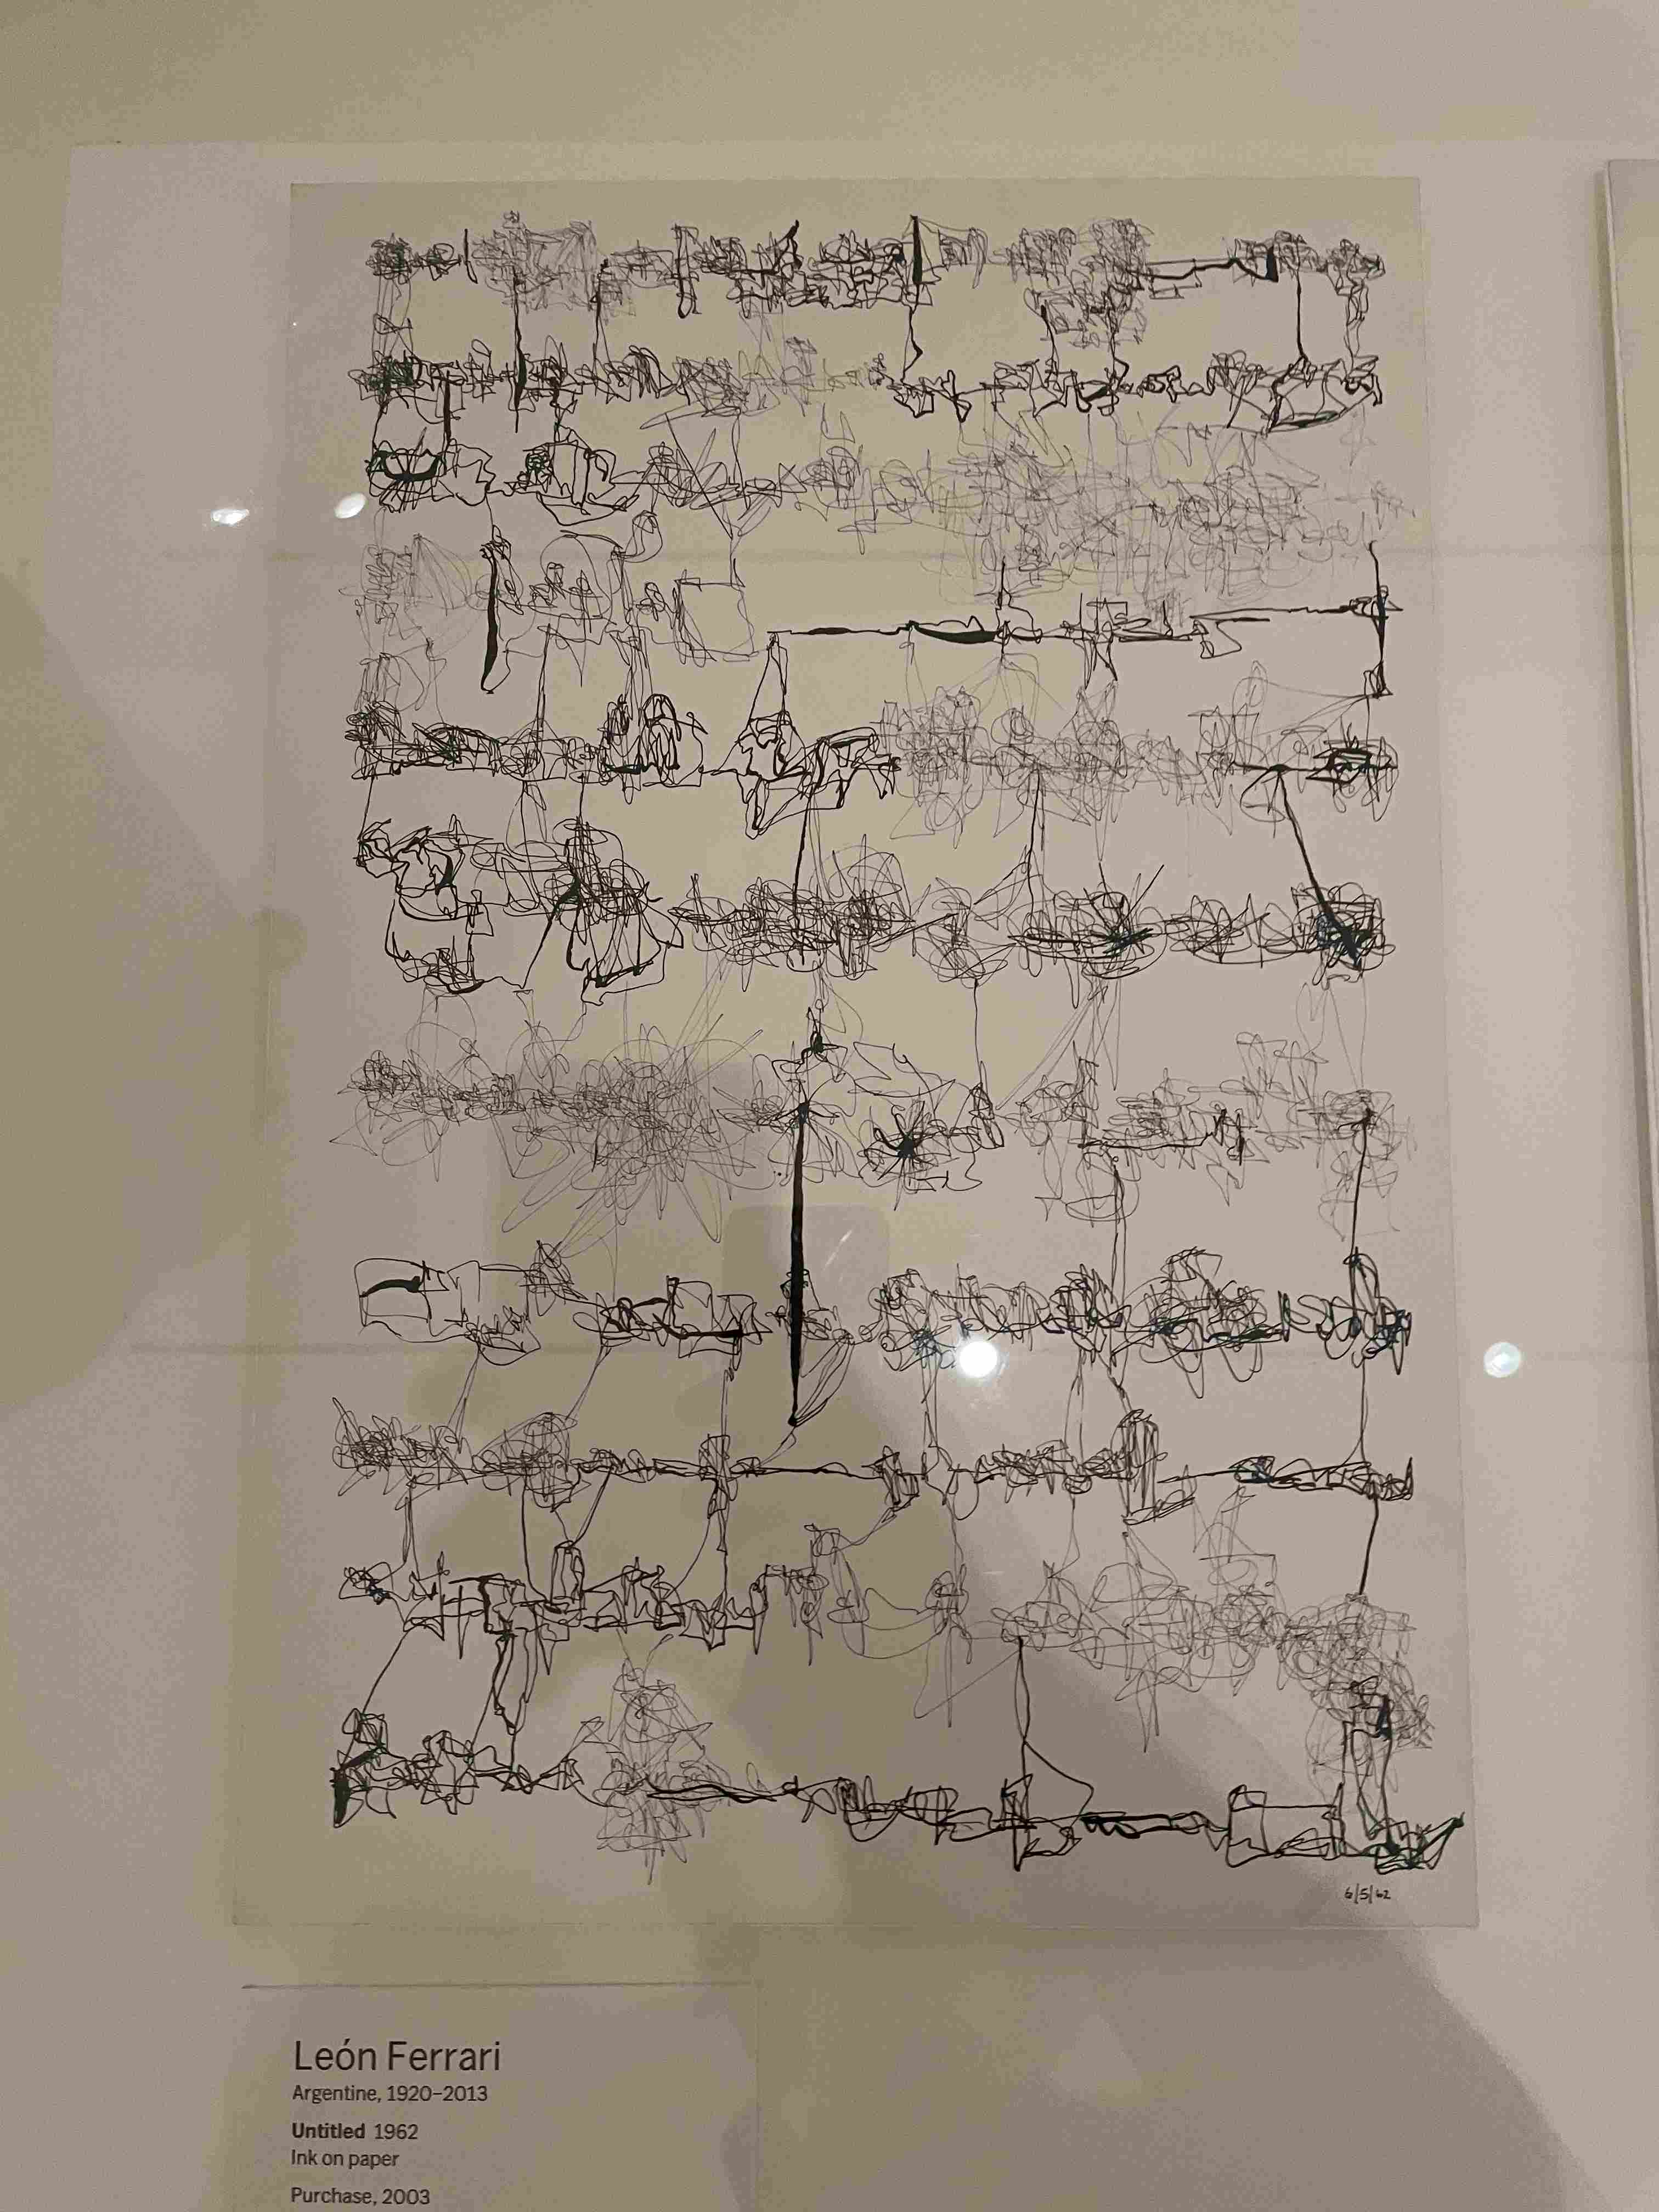 6/5/62
León Ferrari
Argentine, 1920–2013
Untitled 1962
Ink on paper
Purchase, 2003